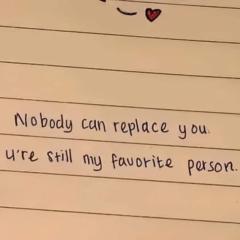 Nobody can replace you.
u're still my favorite person.